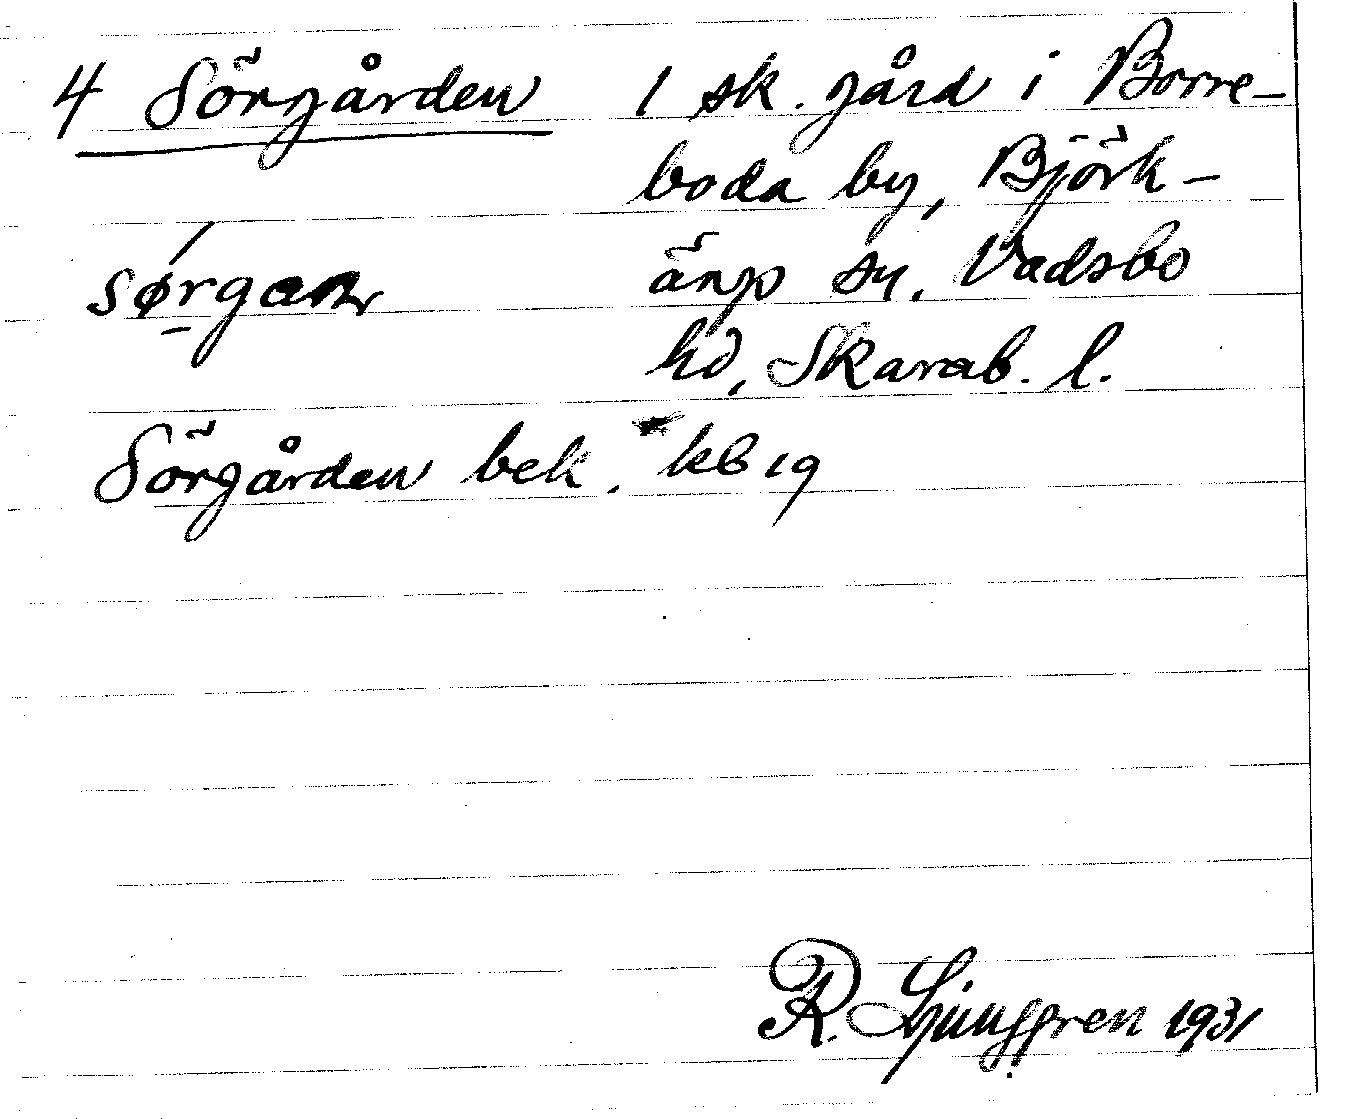 4 Sörgården 1 sk. gård i Borre-
boda by, Björk-
ärp sn. Vadsbo
hd, Skarab. l.
Sörgården bek. kb 19
R. Ljunggren 1931